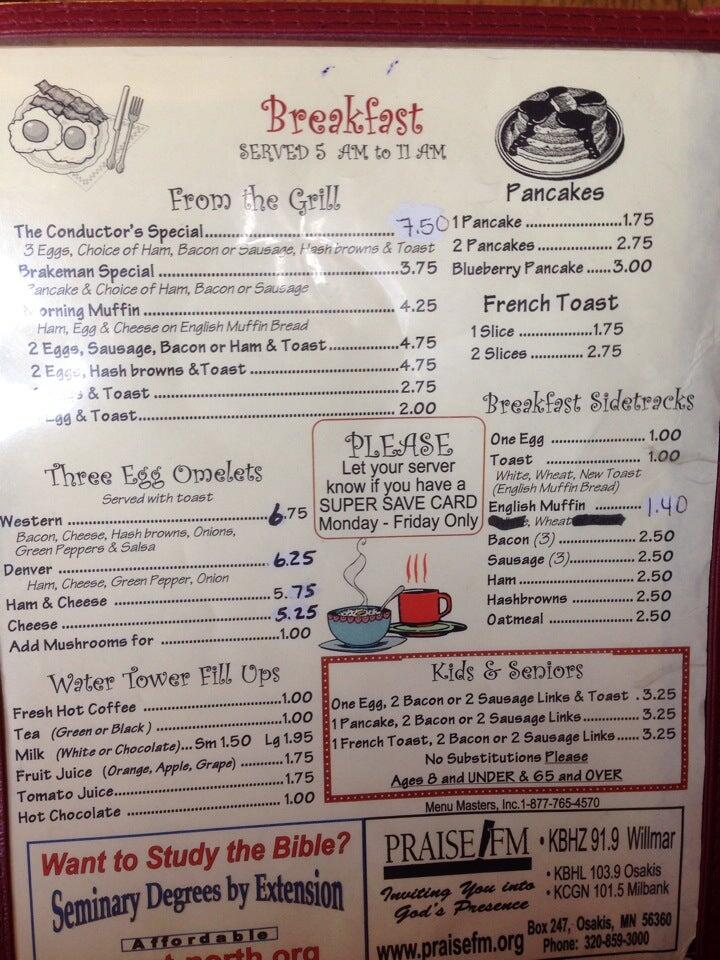 Breakfast
SERVED 5 AM to 11 AM
From the Grill
The Conductor's Special 7.50
3 Eggs, Choice of Ham, Bacon or Sausage, Hash browns & Toast
Brakeman Special 3.75
Pancake & Choice of Ham, Bacon or Sausage
orning Muffin 4.25
Ham, Egg & Cheese on English Muffin Bread
2 Eggs, Sausage, Bacon or Ham & Toast 4.75
2 Eggs, Hash browns & Toast 4.75
& Toast 2.75
gg & Toast 2.00
Pancakes
1 Pancake 1.75
2 Pancakes 2.75
Blueberry Pancake 3.00
French Toast
1 Slice 1.75
2 Slices 2.75
Breakfast Sidetracks
One Egg 1.00
Toast 1.00
White, Wheat, New Toast
(English Muffin Bread)
English Muffin 1.40
Wheat
Bacon (3) 2.50
Sausage (3) 2.50
Ham 2.50
Hashbrowns 2.50
Oatmeal 2.50
PLEASE
Let your server
know if you have a
SUPER SAVE CARD
Monday - Friday Only
Three Egg Omelets
Served with toast
Western 6.75
Bacon, Cheese, Hash browns, Onions,
Green Peppers & Salsa
Denver 6.25
Ham, Cheese, Green Pepper, Onion
Ham & Cheese 5.75
Cheese 5.25
Add Mushrooms for 1.00
Water Tower Fill Ups
Fresh Hot Coffee 1.00
Tea (Green or Black) 1.00
Milk (White or Chocolate)... Sm 1.50 Lg 1.95
Fruit Juice (Orange, Apple, Grape) 1.75
Tomato Juice 1.75
Hot Chocolate 1.00
Kids & Seniors
One Egg, 2 Bacon or 2 Sausage Links & Toast . 3.25
1 Pancake, 2 Bacon or 2 Sausage Links 3.25
1 French Toast, 2 Bacon or 2 Sausage Links 3.25
No Substitutions Please
Ages 8 and UNDER & 65 and OVER
Menu Masters, Inc. 1-877-765-4570
Want to Study the Bible?
Seminary Degrees by Extension
Affordable
north.org
PRAISE FM
Inviting You into
God's Presence
www.praisefm.org
• KBHZ 91.9 Willmar
• KBHL 103.9 Osakis
• KCGN 101.5 Milbank
Box 247, Osakis, MN 56360
Phone: 320-859-3000